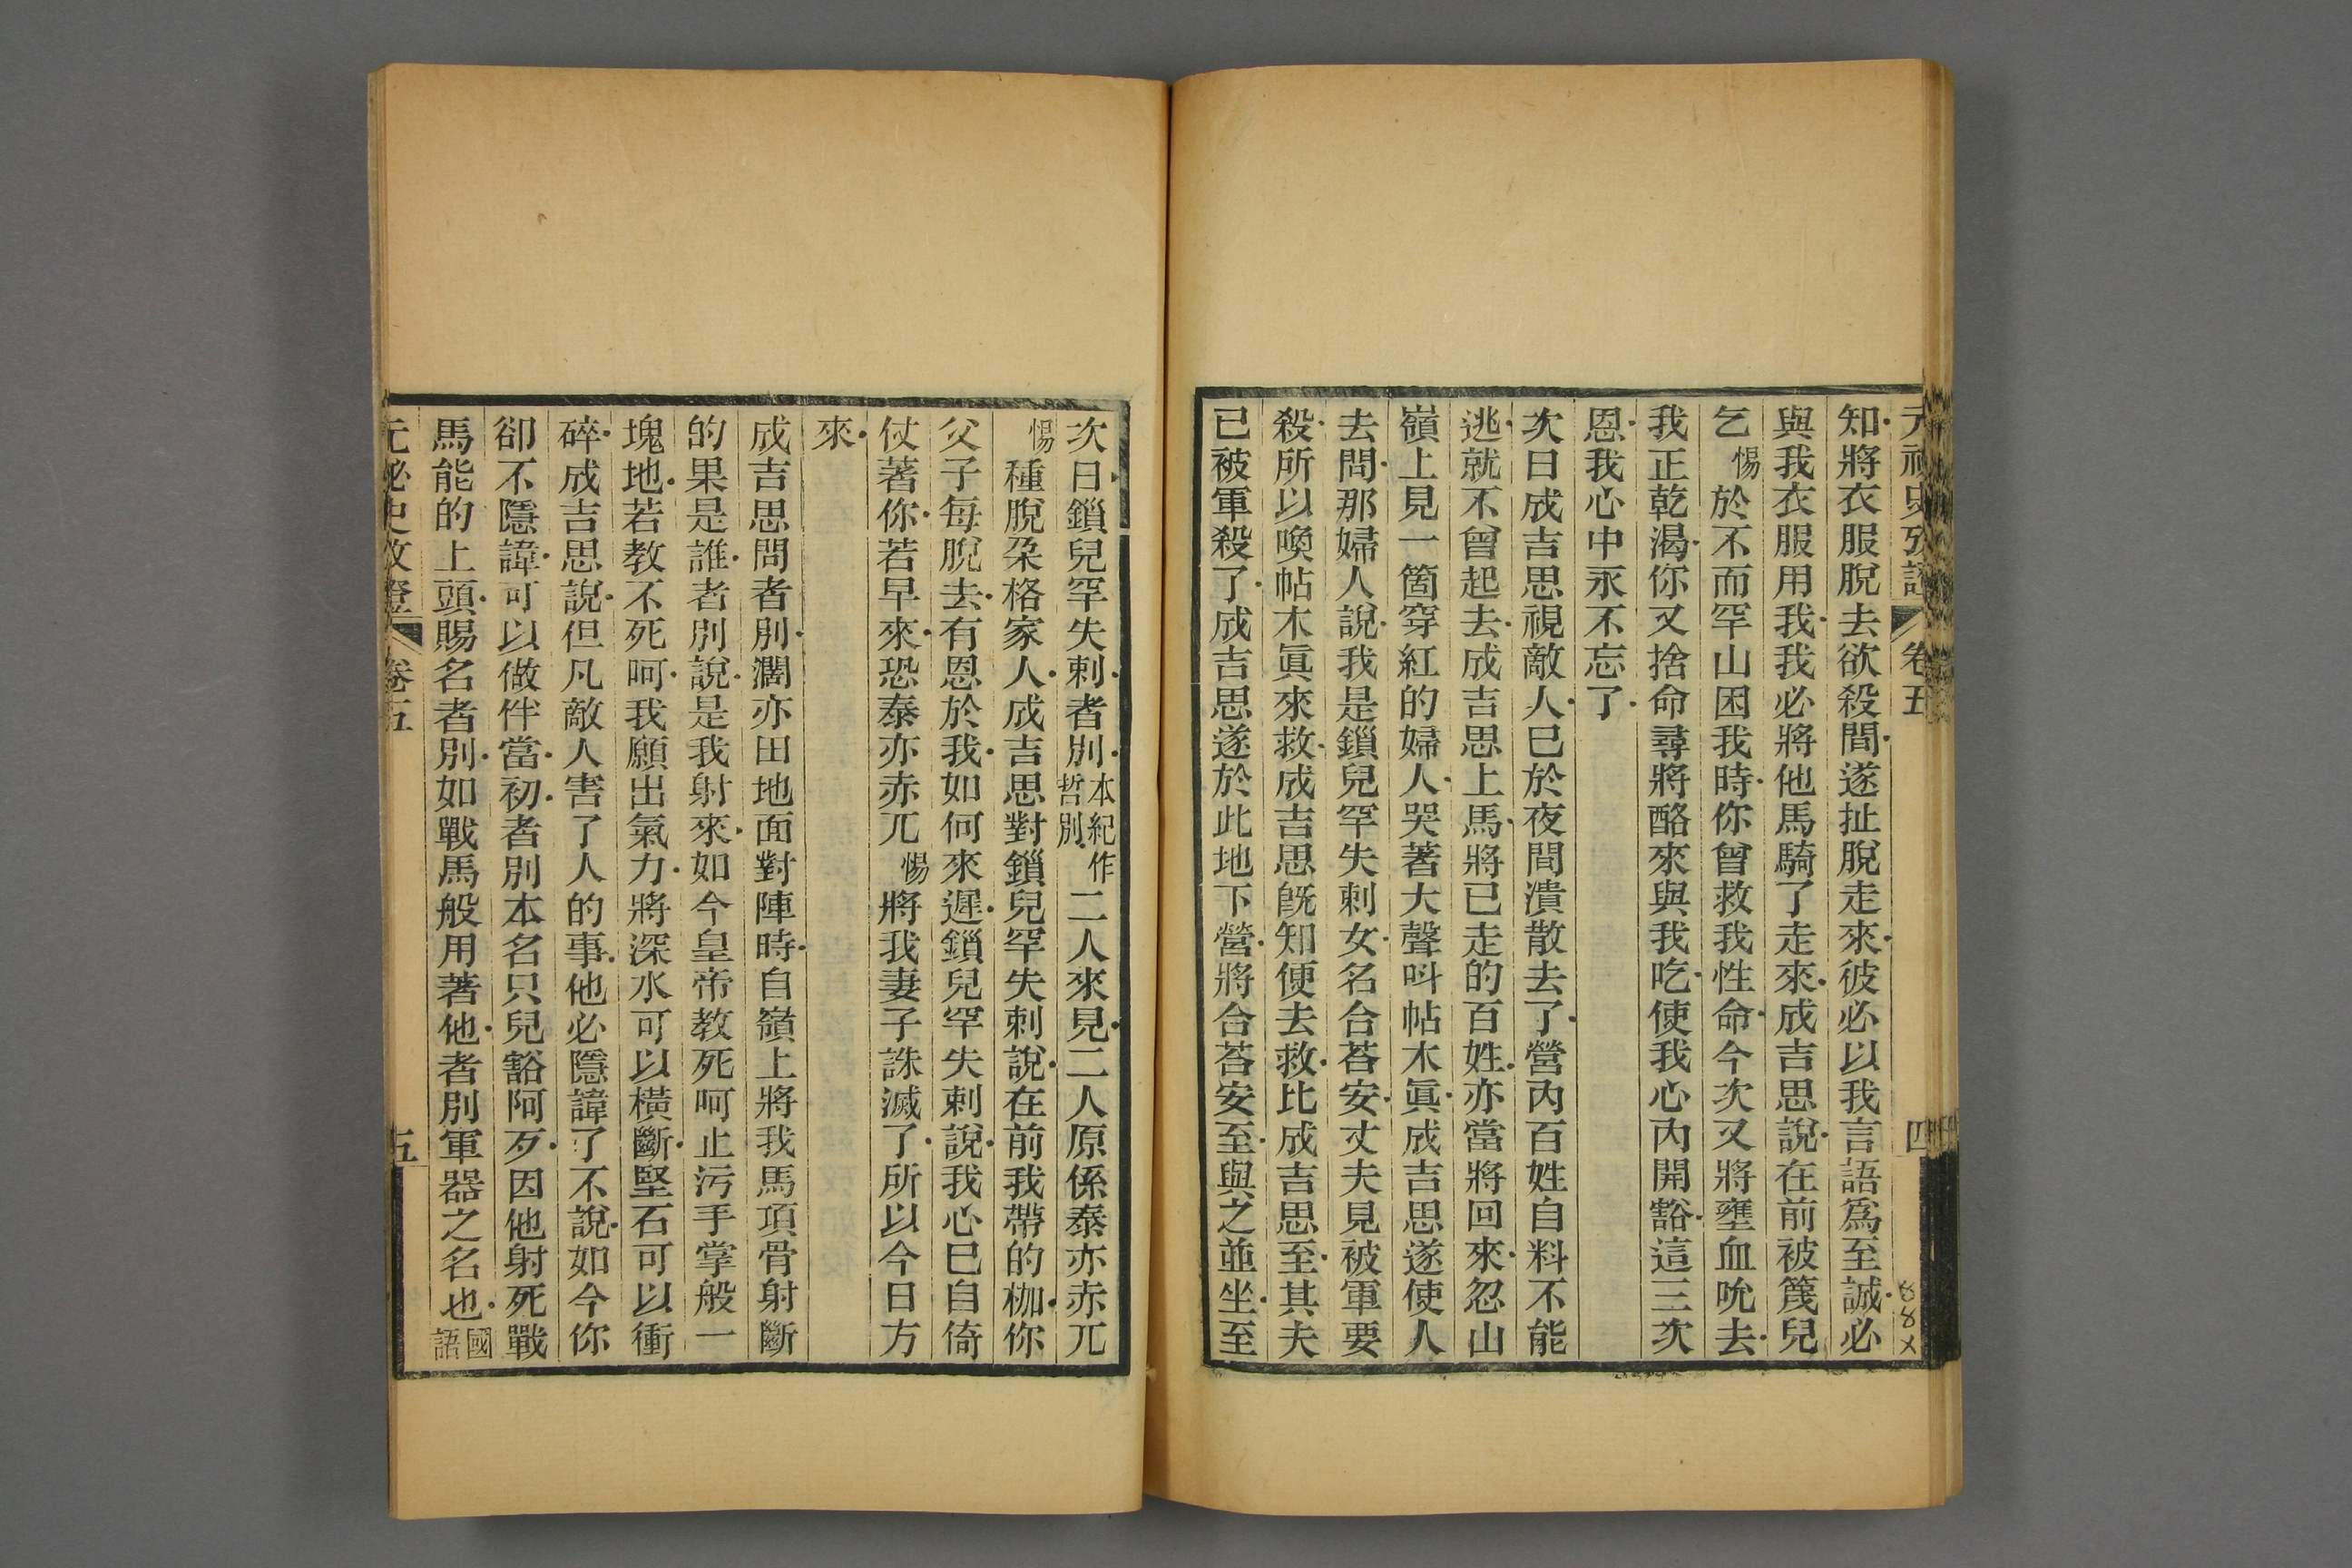 元祕史攷證 卷五 四
知將衣服脫去欲殺間遂扯脫走來彼必以我言語爲至誠必
與我衣服用我我必將他馬騎了走來成吉思說在前被篾兒
乞惕於不而罕山困我時你曾救我性命今次又將壅血吮去
我正乾渴你又捨命尋將酪來與我吃使我心內開豁這三次
恩我心中永不忘了
次日成吉思視敵人已於夜間潰散去了營內百姓自料不能
逃就不曾起去成吉思上馬將已走的百姓亦當將回來忽山
嶺上見一箇穿紅的婦人哭著大聲呌帖木眞成吉思遂使人
去問那婦人說我是鎖兒罕失剌女名合荅安丈夫見被軍要
殺所以喚帖木眞來救成吉思旣知便去救比成吉思至其夫
已被軍殺了成吉思遂於此地下營將合荅安至與之並坐至
次日鎖兒罕失剌者別本紀作哲別二人來見二人原係泰亦赤兀
惕種脫朶格家人成吉思對鎖兒罕失剌說在前我帶的枷你
父子每脫去有恩於我如何來遲鎖兒罕失剌說我心已自倚
仗著你若早來恐泰亦赤兀惕將我妻子誅滅了所以今日方
來
成吉思問者別濶亦田地面對陣時自嶺上將我馬項骨射斷
的果是誰者別說是我射來如今皇帝教死呵止污手掌般一
塊地若教不死呵我願出氣力將深水可以橫斷堅石可以衝
碎成吉思說但凡敵人害了人的事他必隱諱了不說如今你
卻不隱諱可以做伴當初者別本名只兒豁阿歹因他射死戰
馬能的上頭賜名者別如戰馬般用著他者別軍器之名也國語
元祕史攷證 卷五 五